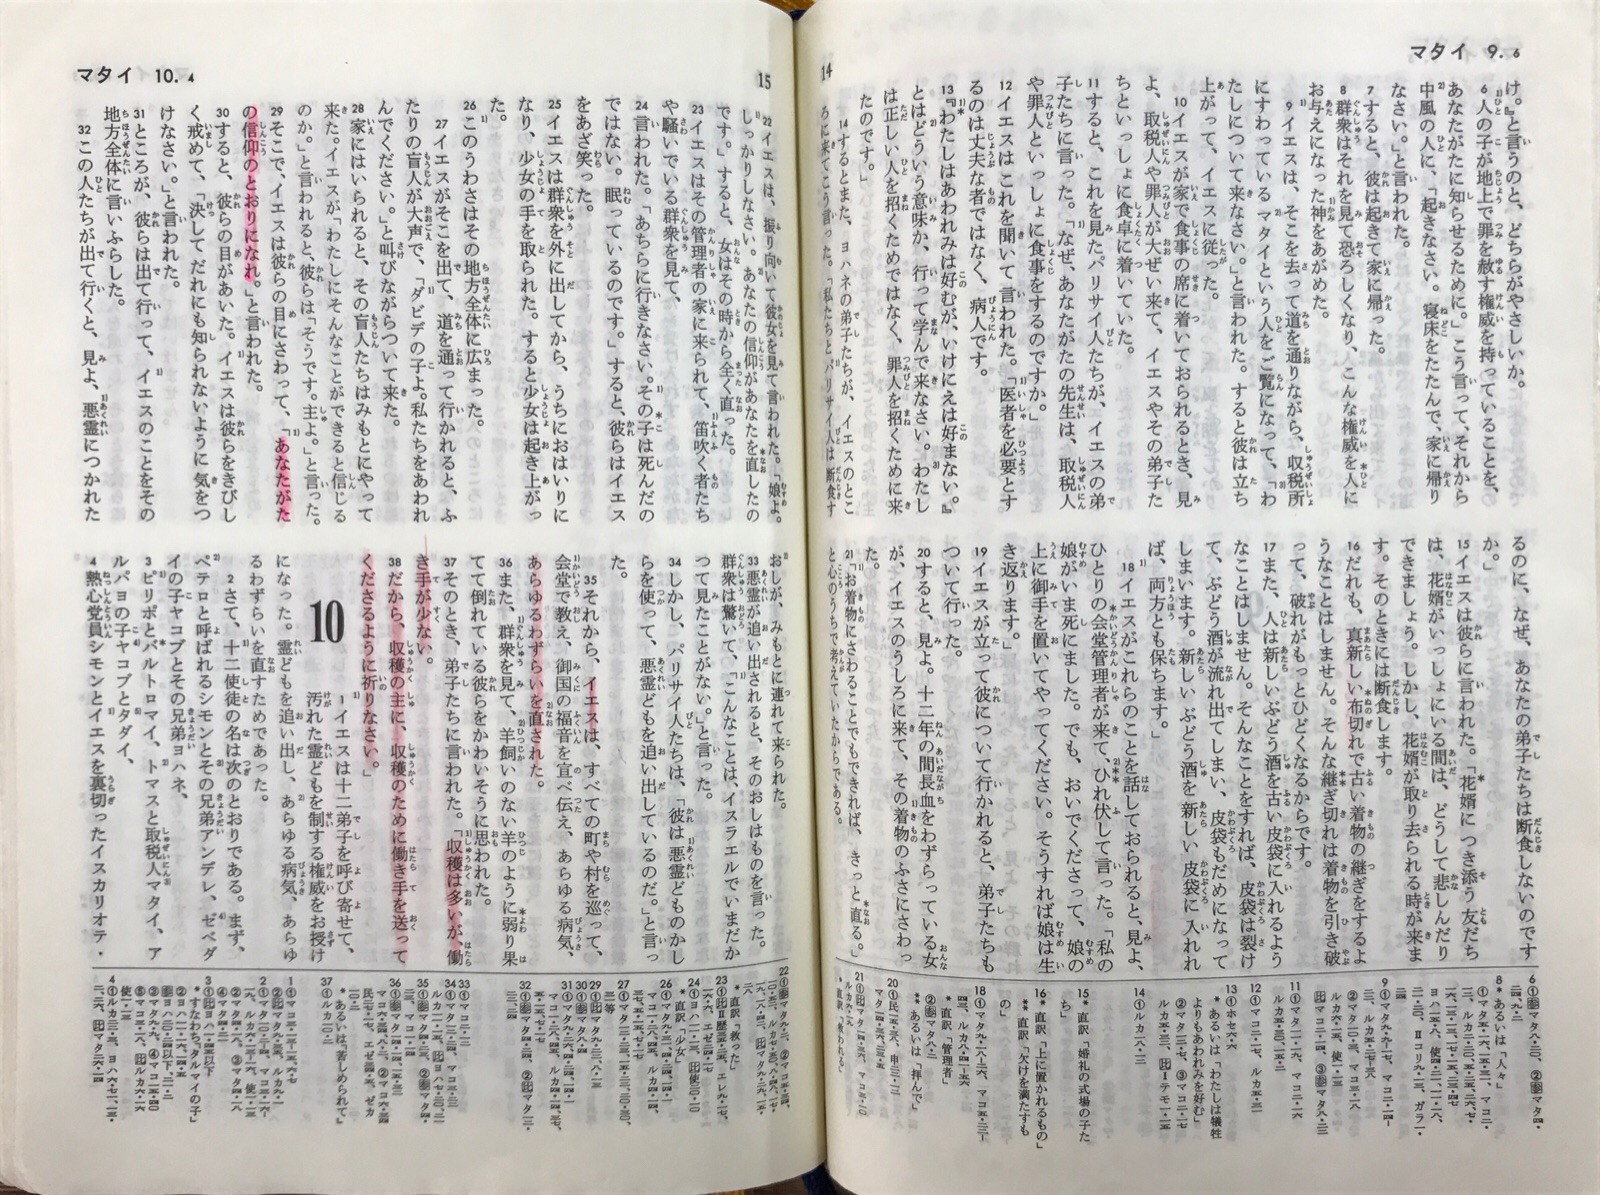 マタイ 9. 6
14
け。』と言うのと、どちらがやさしいか。
6 人の子が地上で罪を赦す権威を持っていることを、
あなたがたに知らせるために。」こう言って、それから
中風の人に、「起きなさい。寝床をたたんで、家に帰り
なさい。」と言われた。
7 すると、彼は起きて家に帰った。
8 群衆はそれを見て恐ろしくなり、こんな権威を人に
お与えになった神をあがめた。
9 イエスは、そこを去って道を通りながら、収税所
にすわっているマタイという人をご覧になって、「わ
たしについて来なさい。」と言われた。すると彼は立ち
上がって、イエスに従った。
10 イエスが家で食事の席に着いておられるとき、見
よ、取税人や罪人が大ぜい来て、イエスやその弟子た
ちといっしょに食卓に着いていた。
11 すると、これを見たパリサイ人たちが、イエスの弟
子たちに言った。「なぜ、あなたがたの先生は、取税人
や罪人といっしょに食事をするのですか。」
12 イエスはこれを聞いて言われた。「医者を必要とす
るのは丈夫な者ではなく、病人です。
13 『わたしはあわれみは好むが、いけにえは好まない。』
とはどういう意味か、行って学んで来なさい。わたし
は正しい人を招くためではなく、罪人を招くために来
たのです。」
14 するとまた、ヨハネの弟子たちが、イエスのとこ
ろに来てこう言った。「私たちとパリサイ人は断食す
るのに、なぜ、あなたの弟子たちは断食しないのです
か。」
15 イエスは彼らに言われた。「花婿につき添う友だち
は、花婿がいっしょにいる間は、どうして悲しんだり
できましょう。しかし、花婿が取り去られる時が来ま
す。そのときには断食します。
16 だれも、真新しい布切れで古い着物の継ぎをするよ
うなことはしません。そんな継ぎ切れは着物を引き破
って、破れがもっとひどくなるからです。
17 また、人は新しいぶどう酒を古い皮袋に入れるよう
なことはしません。そんなことをすれば、皮袋は裂け
て、ぶどう酒が流れ出てしまい、皮袋もだめになって
しまいます。新しいぶどう酒を新しい皮袋に入れれ
ば、両方とも保ちます。」
18 イエスがこれらのことを話しておられると、見よ、
ひとりの会堂管理者が来て、ひれ伏して言った。「私の
娘がいま死にました。でも、おいでくださって、娘の
上に御手を置いてやってください。そうすれば娘は生
き返ります。」
19 イエスが立って彼について行かれると、弟子たちも
ついて行った。
20 すると、見よ。十二年の間長血をわずらっている女
が、イエスのうしろに来て、その着物のふさにさわっ
た。
21 「お着物にさわることでもできれば、きっと直る。」
と心のうちで考えていたからである。
8 *あるいは「人々」
*あるいは「わたしは犠牲
よりもあわれみを好む」
15 *直訳「婚礼の式場の子た
ち」
16 *直訳「上に置かれるもの」
**直訳「欠けを満たすも
の」
*直訳「管理者」
**あるいは「拝んで」
*直訳「救われる」
マタイ 10. 4
15
22 イエスは、振り向いて彼女を見て言われた。「娘よ。
しっかりしなさい。あなたの信仰があなたを直したの
です。」すると、女はその時から全く直った。
23 イエスはその管理者の家に来られて、笛吹く者たち
や騒いでいる群衆を見て、
24 言われた。「あちらに行きなさい。その子は死んだの
ではない。眠っているのです。」すると、彼らはイエス
をあざ笑った。
25 イエスは群衆を外に出してから、うちにおはいりに
なり、少女の手を取られた。すると少女は起き上がっ
た。
26 このうわさはその地方全体に広まった。
27 イエスがそこを出て、道を通って行かれると、ふ
たりの盲人が大声で、「ダビデの子よ。私たちをあわれ
んでください。」と叫びながらついて来た。
28 家にはいられると、その盲人たちはみもとにやって
来た。イエスが「わたしにそんなことができると信じる
のか。」と言われると、彼らは「そうです。主よ。」と言った。
29 そこで、イエスは彼らの目にさわって、「あなたがた
の信仰のとおりになれ。」と言われた。
30 すると、彼らの目があいた。イエスは彼らをきびし
く戒めて、「決してだれにも知られないように気をつ
けなさい。」と言われた。
31 ところが、彼らは出て行って、イエスのことをその
地方全体に言いふらした。
32 この人たちが出て行くと、見よ、悪霊につかれた
おしが、みもとに連れて来られた。
33 悪霊が追い出されると、そのおしはものを言った。
群衆は驚いて、「こんなことは、イスラエルでいまだか
つて見たことがない。」と言った。
34 しかし、パリサイ人たちは、「彼は悪霊どものかし
らを使って、悪霊どもを追い出しているのだ。」と言っ
た。
35 それから、イエスは、すべての町や村を巡って、
会堂で教え、御国の福音を宣べ伝え、あらゆる病気、
あらゆるわずらいを直された。
36 また、群衆を見て、羊飼いのない羊のように弱り果
てて倒れている彼らをかわいそうに思われた。
37 そのとき、弟子たちに言われた。「収穫は多いが、働
き手が少ない。
38 だから、収穫の主に、収穫のために働き手を送って
くださるように祈りなさい。」
10
1 イエスは十二弟子を呼び寄せて、
汚れた霊どもを制する権威をお授け
になった。霊どもを追い出し、あらゆる病気、あらゆ
るわずらいを直すためであった。
2 さて、十二使徒の名は次のとおりである。まず、
ペテロと呼ばれるシモンとその兄弟アンデレ、ゼベダ
イの子ヤコブとその兄弟ヨハネ、
3 ピリポとバルトロマイ、トマスと取税人マタイ、ア
ルパヨの子ヤコブとタダイ、
4 熱心党員シモンとイエスを裏切ったイスカリオテ・
*直訳「救った」
*直訳「少女」
*あるいは「苦しめられて」
*すなわち「タルマイの子」